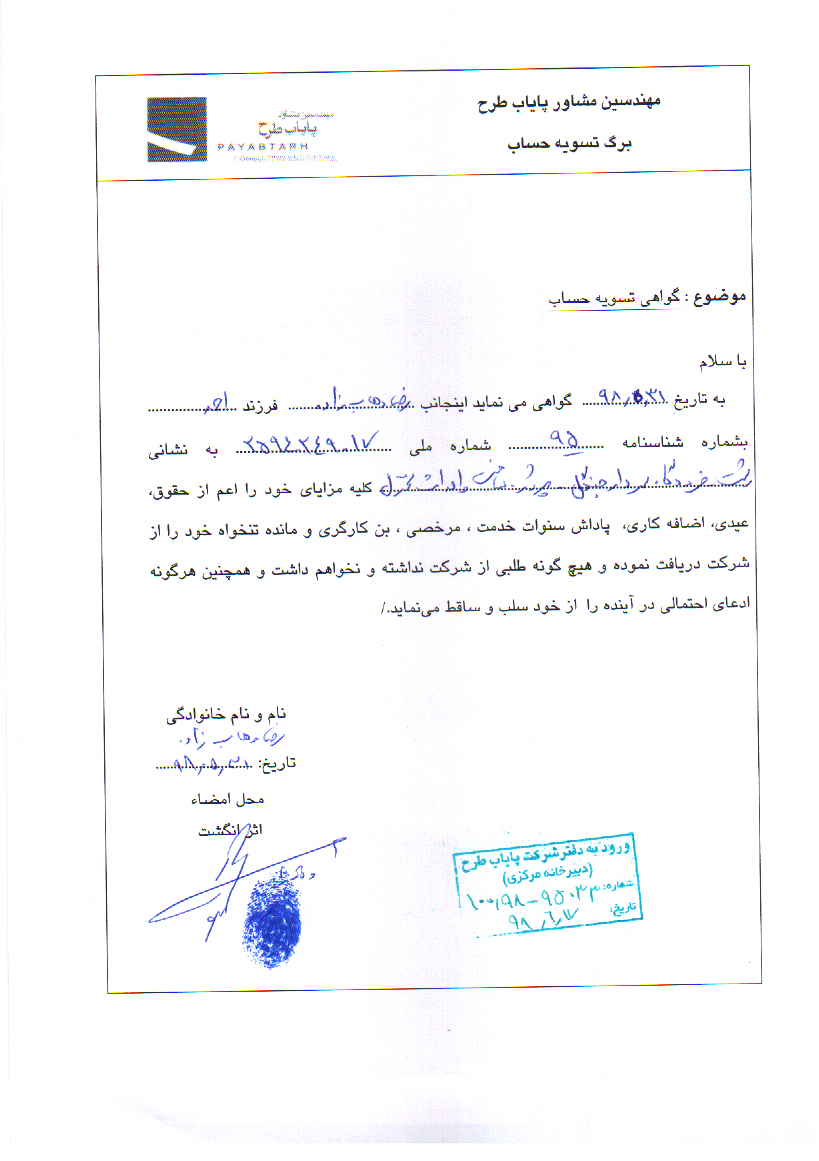 مهندسین مشاور پایاب طرح
برگ تسویه حساب
مهندسین مشاور
پایاب طرح
PAYABTARH
CONSULTING ENGINEERS
موضوع : گواهی تسویه حساب
با سلام
به تاریخ ۹۸/۵/۳۱ گواهی می نماید اینجانب رضا وهاب زاده فرزند احمد
بشماره شناسنامه ۹۵ شماره ملی ۲۵۹۴۲۴۹۰۱۷ به نشانی
رشت فرودگاه سردار جنگل کلیه مزایای خود را اعم از حقوق،
عیدی، اضافه کاری، پاداش سنوات خدمت ، مرخصی ، بن کارگری و مانده تنخواه خود را از
شرکت دریافت نموده و هیچ گونه طلبی از شرکت نداشته و نخواهم داشت و همچنین هرگونه
ادعای احتمالی در آینده را از خود سلب و ساقط می‌نماید./
نام و نام خانوادگی
رضا وهاب زاده
تاریخ: ۹۸/۵/۳۱
محل امضاء
اثر انگشت
ورود به دفتر شرکت پایاب طرح
(دبیرخانه مرکزی)
شماره: ۱۰۰/۹۸-۹۵۰۳۳
تاریخ: ۹۸/۶/۱۷